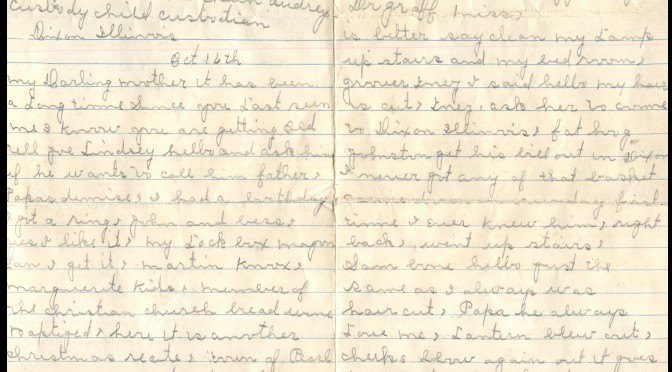 custody child custodian
Dixon Illinois
Oct 16th
my Darling mother it has been
a Long time since you Last seen
me I know you are getting old
tell Joe Lindsey hello and ask him
if he wants to call him father,
Papas demise, I had a birthday
I got a ring, John and bess,
yes I like it, my Lock box
Ian, get it, martin Knox,
marguerite Kids, member of
the christian church bread wine
baptized, here it is another
christmas recite, town of Pearl
Dr graff miss,
is better say clean my Lamp
up stairs and my bed room,
grover Iney I said hello my hair
is cut, Iney, ask her to come
to Dixon Illinois, fat hog
Johnston get his bill out in Dixon
I never got any of that basket
came down on sunday first
time I ever knew him, right
back, went up stairs,
Sam bone hello just the
same as I always was
hair cut, Papa he always
Love me, Lantern blew out,
cheeks blow again out it goes